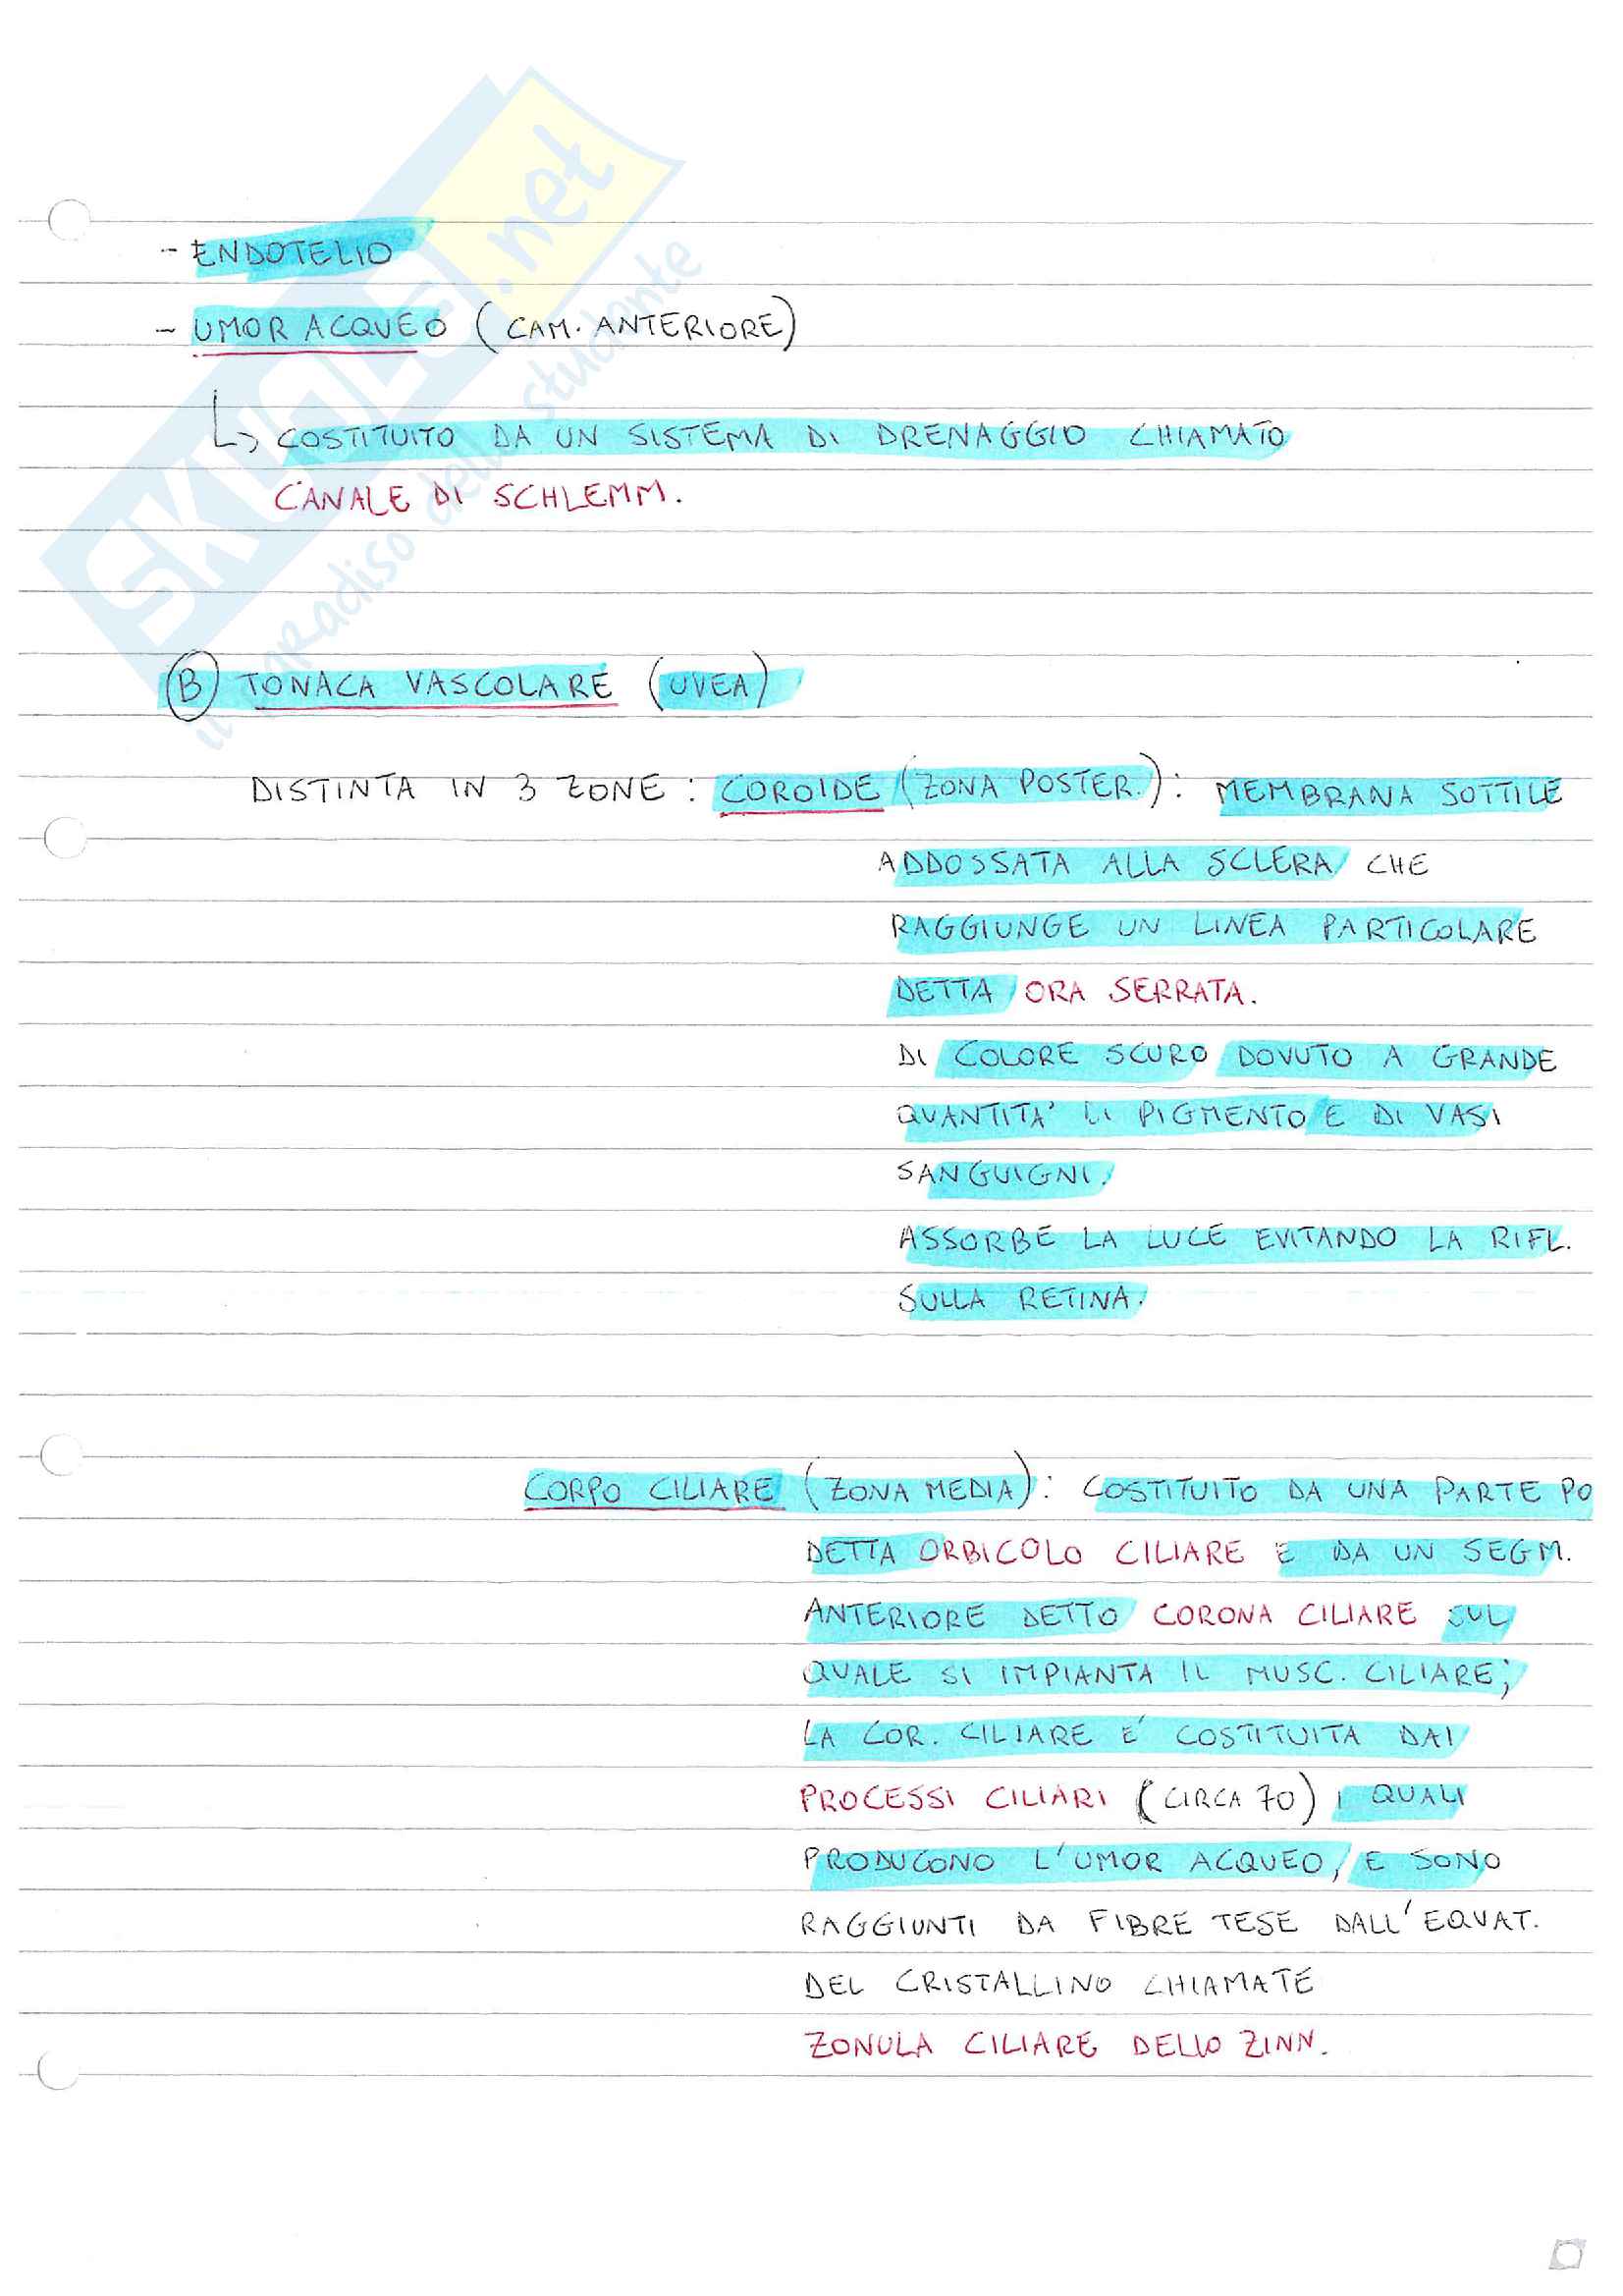 - ENDOTELIO
- UMOR ACQUEO (CAM. ANTERIORE)
↳ COSTITUITO DA UN SISTEMA DI DRENAGGIO CHIAMATO
CANALE DI SCHLEMM.
B TONACA VASCOLARE (UVEA)
DISTINTA IN 3 ZONE : COROIDE (ZONA POSTER.) : MEMBRANA SOTTILE
ADDOSSATA ALLA SCLERA CHE
RAGGIUNGE UN LINEA PARTICOLARE
DETTA ORA SERRATA.
DI COLORE SCURO DOVUTO A GRANDE
QUANTITA' DI PIGMENTO E DI VASI
SANGUIGNI.
ASSORBE LA LUCE EVITANDO LA RIFL.
SULLA RETINA.
CORPO CILIARE (ZONA MEDIA) : COSTITUITO DA UNA PARTE PO
DETTA ORBICOLO CILIARE E DA UN SEGM.
ANTERIORE DETTO CORONA CILIARE SUL
QUALE SI IMPIANTA IL MUSC. CILIARE;
LA COR. CILIARE E' COSTITUITA DAI
PROCESSI CILIARI (CIRCA 70) I QUALI
PRODUCONO L'UMOR ACQUEO, E SONO
RAGGIUNTI DA FIBRE TESE DALL'EQUAT.
DEL CRISTALLINO CHIAMATE
ZONULA CILIARE DELLO ZINN.
SKUOLA.net
il paradiso dello studente